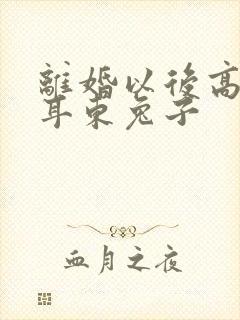 離婚以後高
耳東兔子
血月之夜